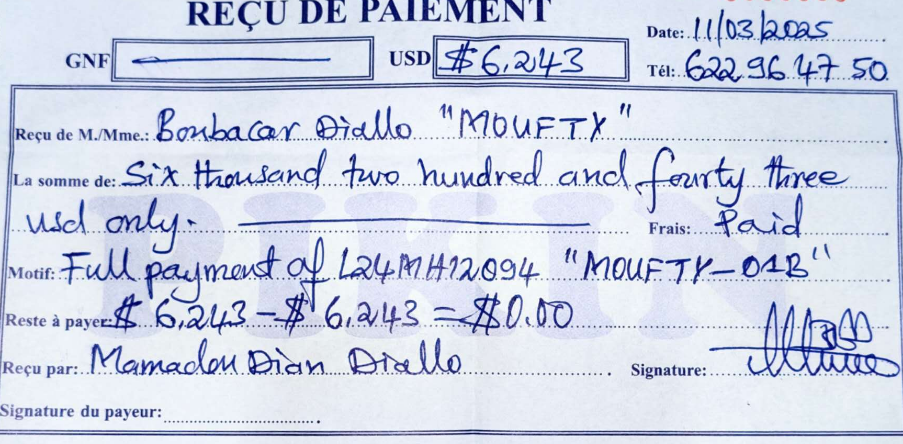 REÇU DE PAIEMENT
Date: 11/03/2025
GNF USD $6,243
Tél: 622 96 47 50
Reçu de M./Mme.: Boubacar Diallo "MOUFTY"
La somme de: Six thousand two hundred and fourty three
usd only. Frais: Paid
Motif: Full payment of L24MH12094 "MOUFTY-01B"
Reste à payer: $ 6,243 - $ 6,243 = $0.00
Reçu par: Mamadou Dian Diallo Signature:
Signature du payeur:
PIKIN